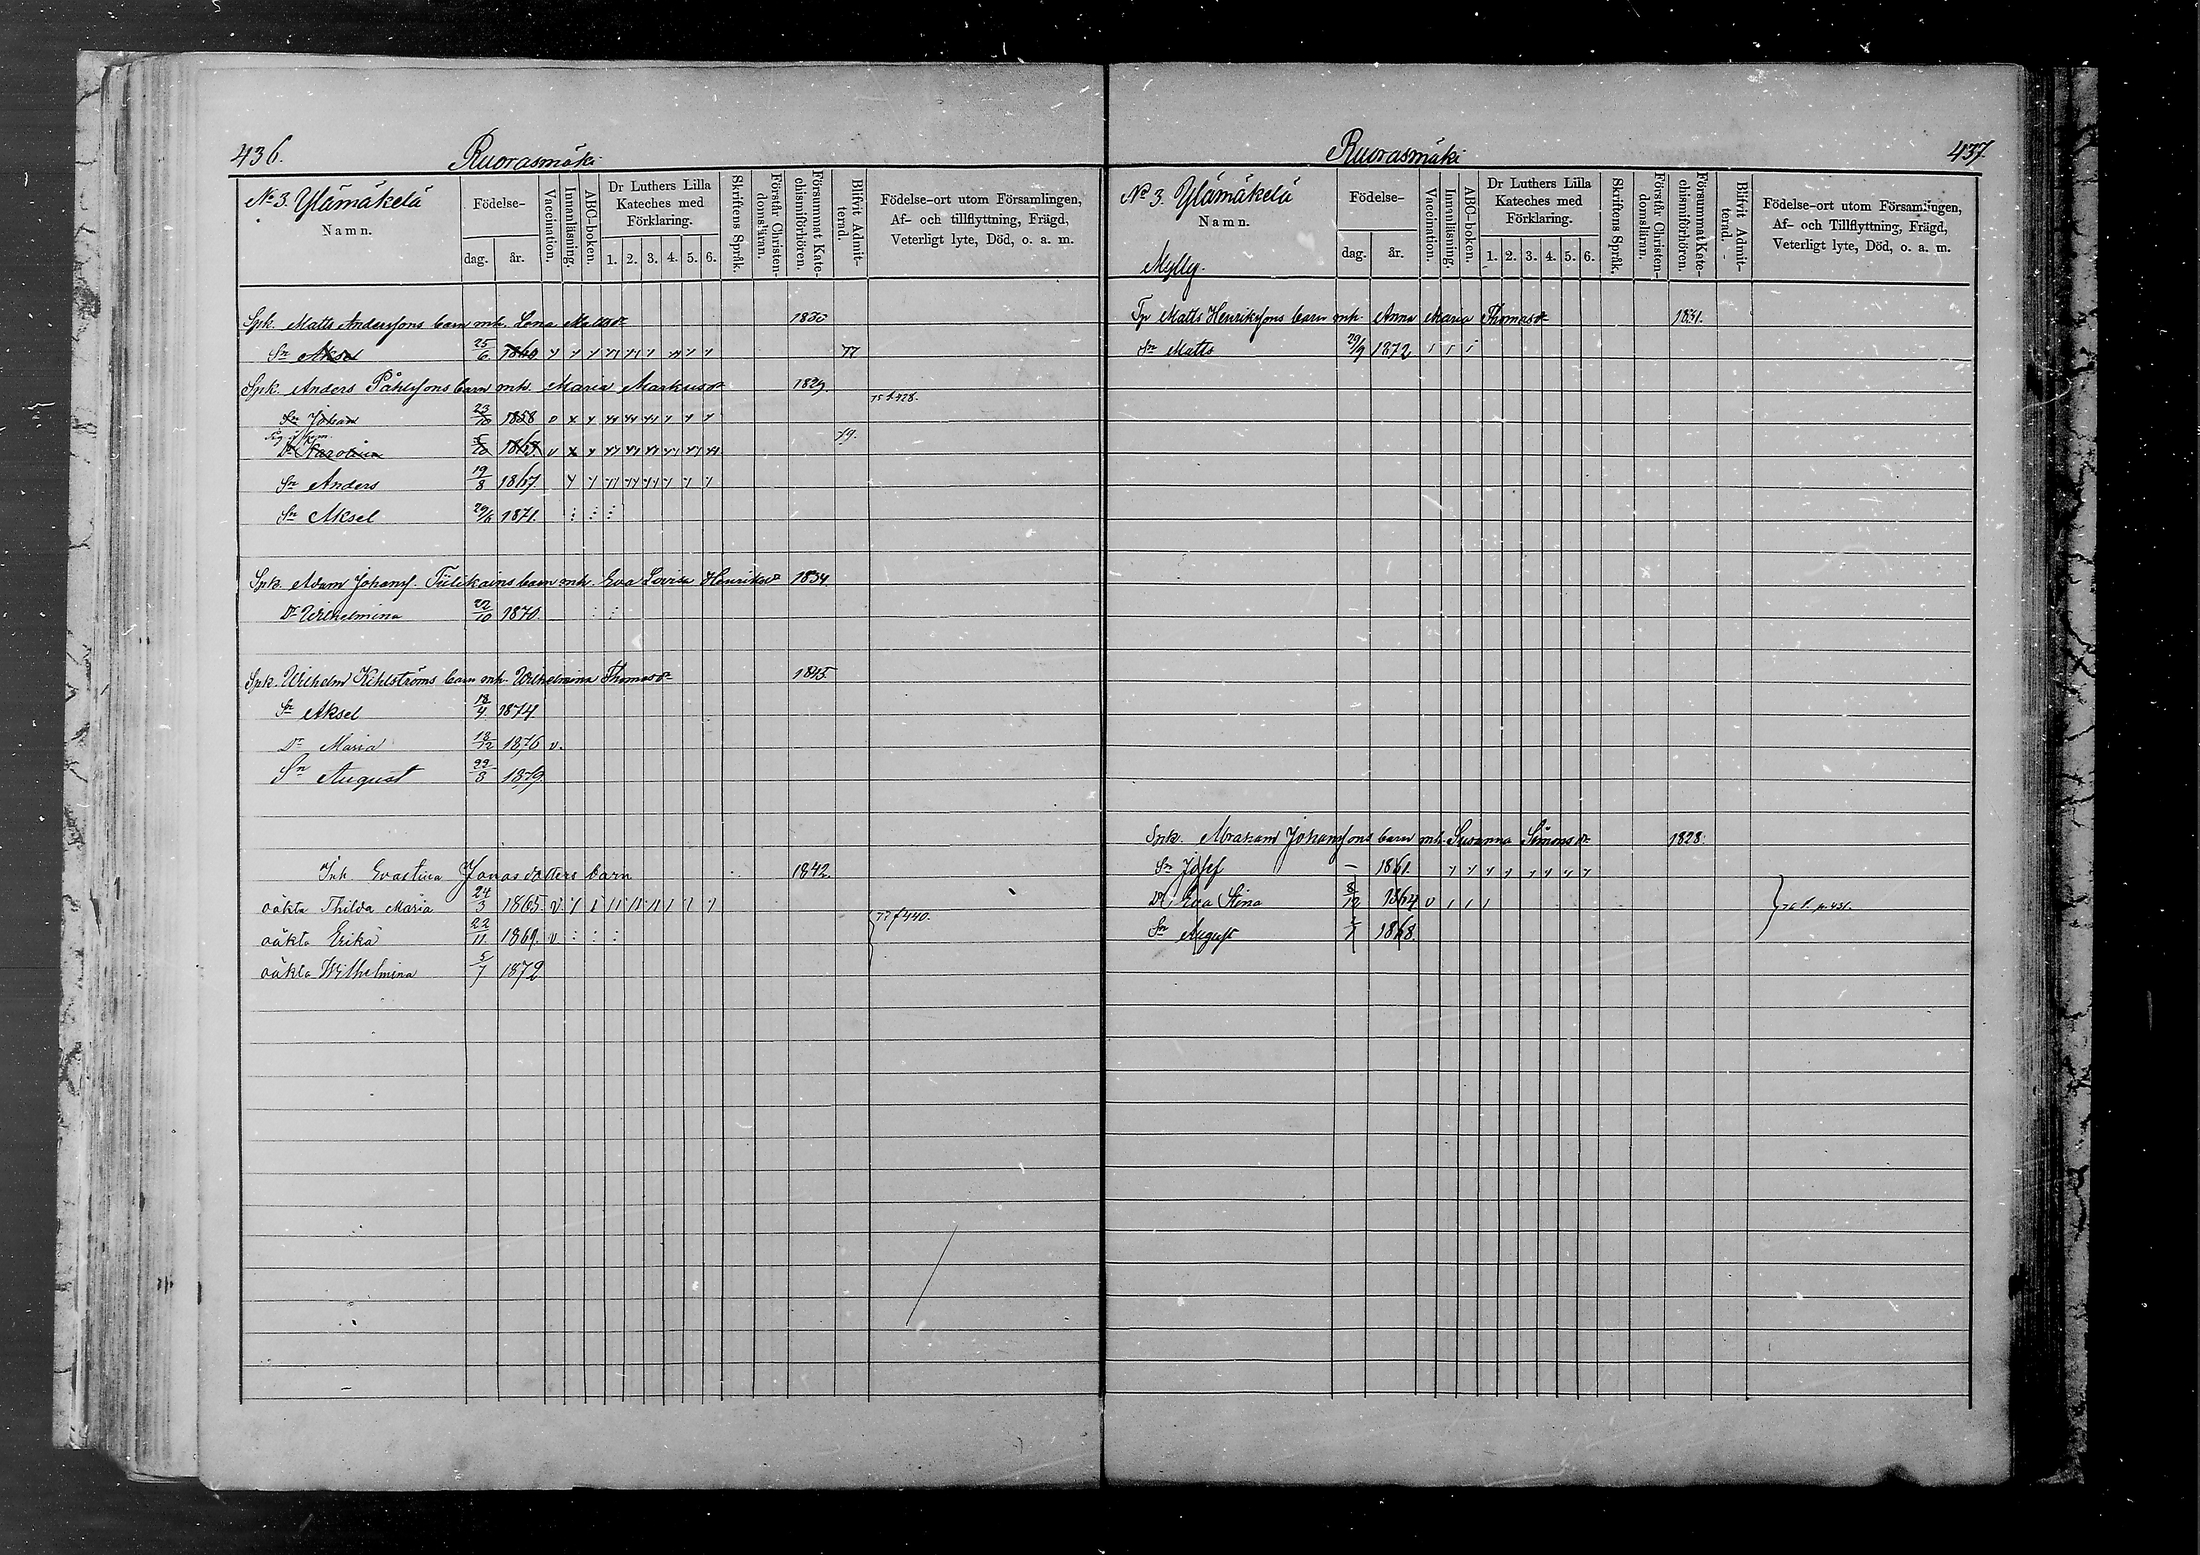 436.
Ruorasmäki
No 3. Ylämäkelä
Namn.
Födelse-
dag.
år.
Vaccination.
Innanläsning.
ABC-boken.
Dr Luthers Lilla
Kateches med
Förklaring.
1. 2. 3. 4. 5. 6.
Skriftens Språk.
Förstår Christen-
domsläran.
Försummat Kate-
chismiförhören.
Blifvit Admit-
terad.
Födelse-ort utom Församlingen,
Af- och tillflyttning, Frägd,
Veterligt lyte, Död, o. a. m.
Spk. Matts Anderssons barn mh. Lena Mattsdr 1830
Sn Aksel 25/6 1860 77
Spk. Anders Påhlssons barn mh. Maria Markusdr 1829.
75 f. 428.
Sn Johan 23/10 1858 v
Dr Karolina 5/10 1863 v 79.
Sn Anders 19/8 1867.
Sn Aksel 29/6 1871.
Spk. Adam Johans. Tiilikains barn mh. Eva Lovisa Henriksdr 1834
Dr Wilhelmina 22/10 1870.
Spk. Wilhelm Kihlströms barn mh. Wilhelmina Thomasdr 1845
Sn Aksel 18/4 1874.
Dr Maria 18/12 1876 v.
Sn August 22/3 1879
Inh. Evastina Jonasdotters barn 1842.
oäkta Thilda Maria 24/3 1865 v.
77 f 440.
oäkta Erika 22/11 1869. v
oäkta Wilhelmina 5/7 1872
Ruorasmäki
437.
No 3. Ylämäkelä
Namn.
Mylly.
Födelse-
dag.
år.
Vaccination.
Innanläsning.
ABC-boken.
Dr Luthers Lilla
Kateches med
Förklaring.
1. 2. 3. 4. 5. 6.
Skriftens Språk.
Förstår Christen-
domsläran.
Försummat Kate-
chismiförhören.
Blifvit Admit-
terad.
Födelse-ort utom Församlingen,
Af- och Tillflyttning, Frägd,
Veterligt lyte, Död, o. a. m.
Tp Matts Henrikssons barn mh. Anna Maria Thomasdr 1831.
Sn Matts 29/9 1872
Spk. Abraham Johanssons barn mh. Susanna Simonsdr 1828.
Sn Josef – 1861.
Dr Eva Stina 8/12 1864 v
76 f. p. 431.
Sn August 1868.